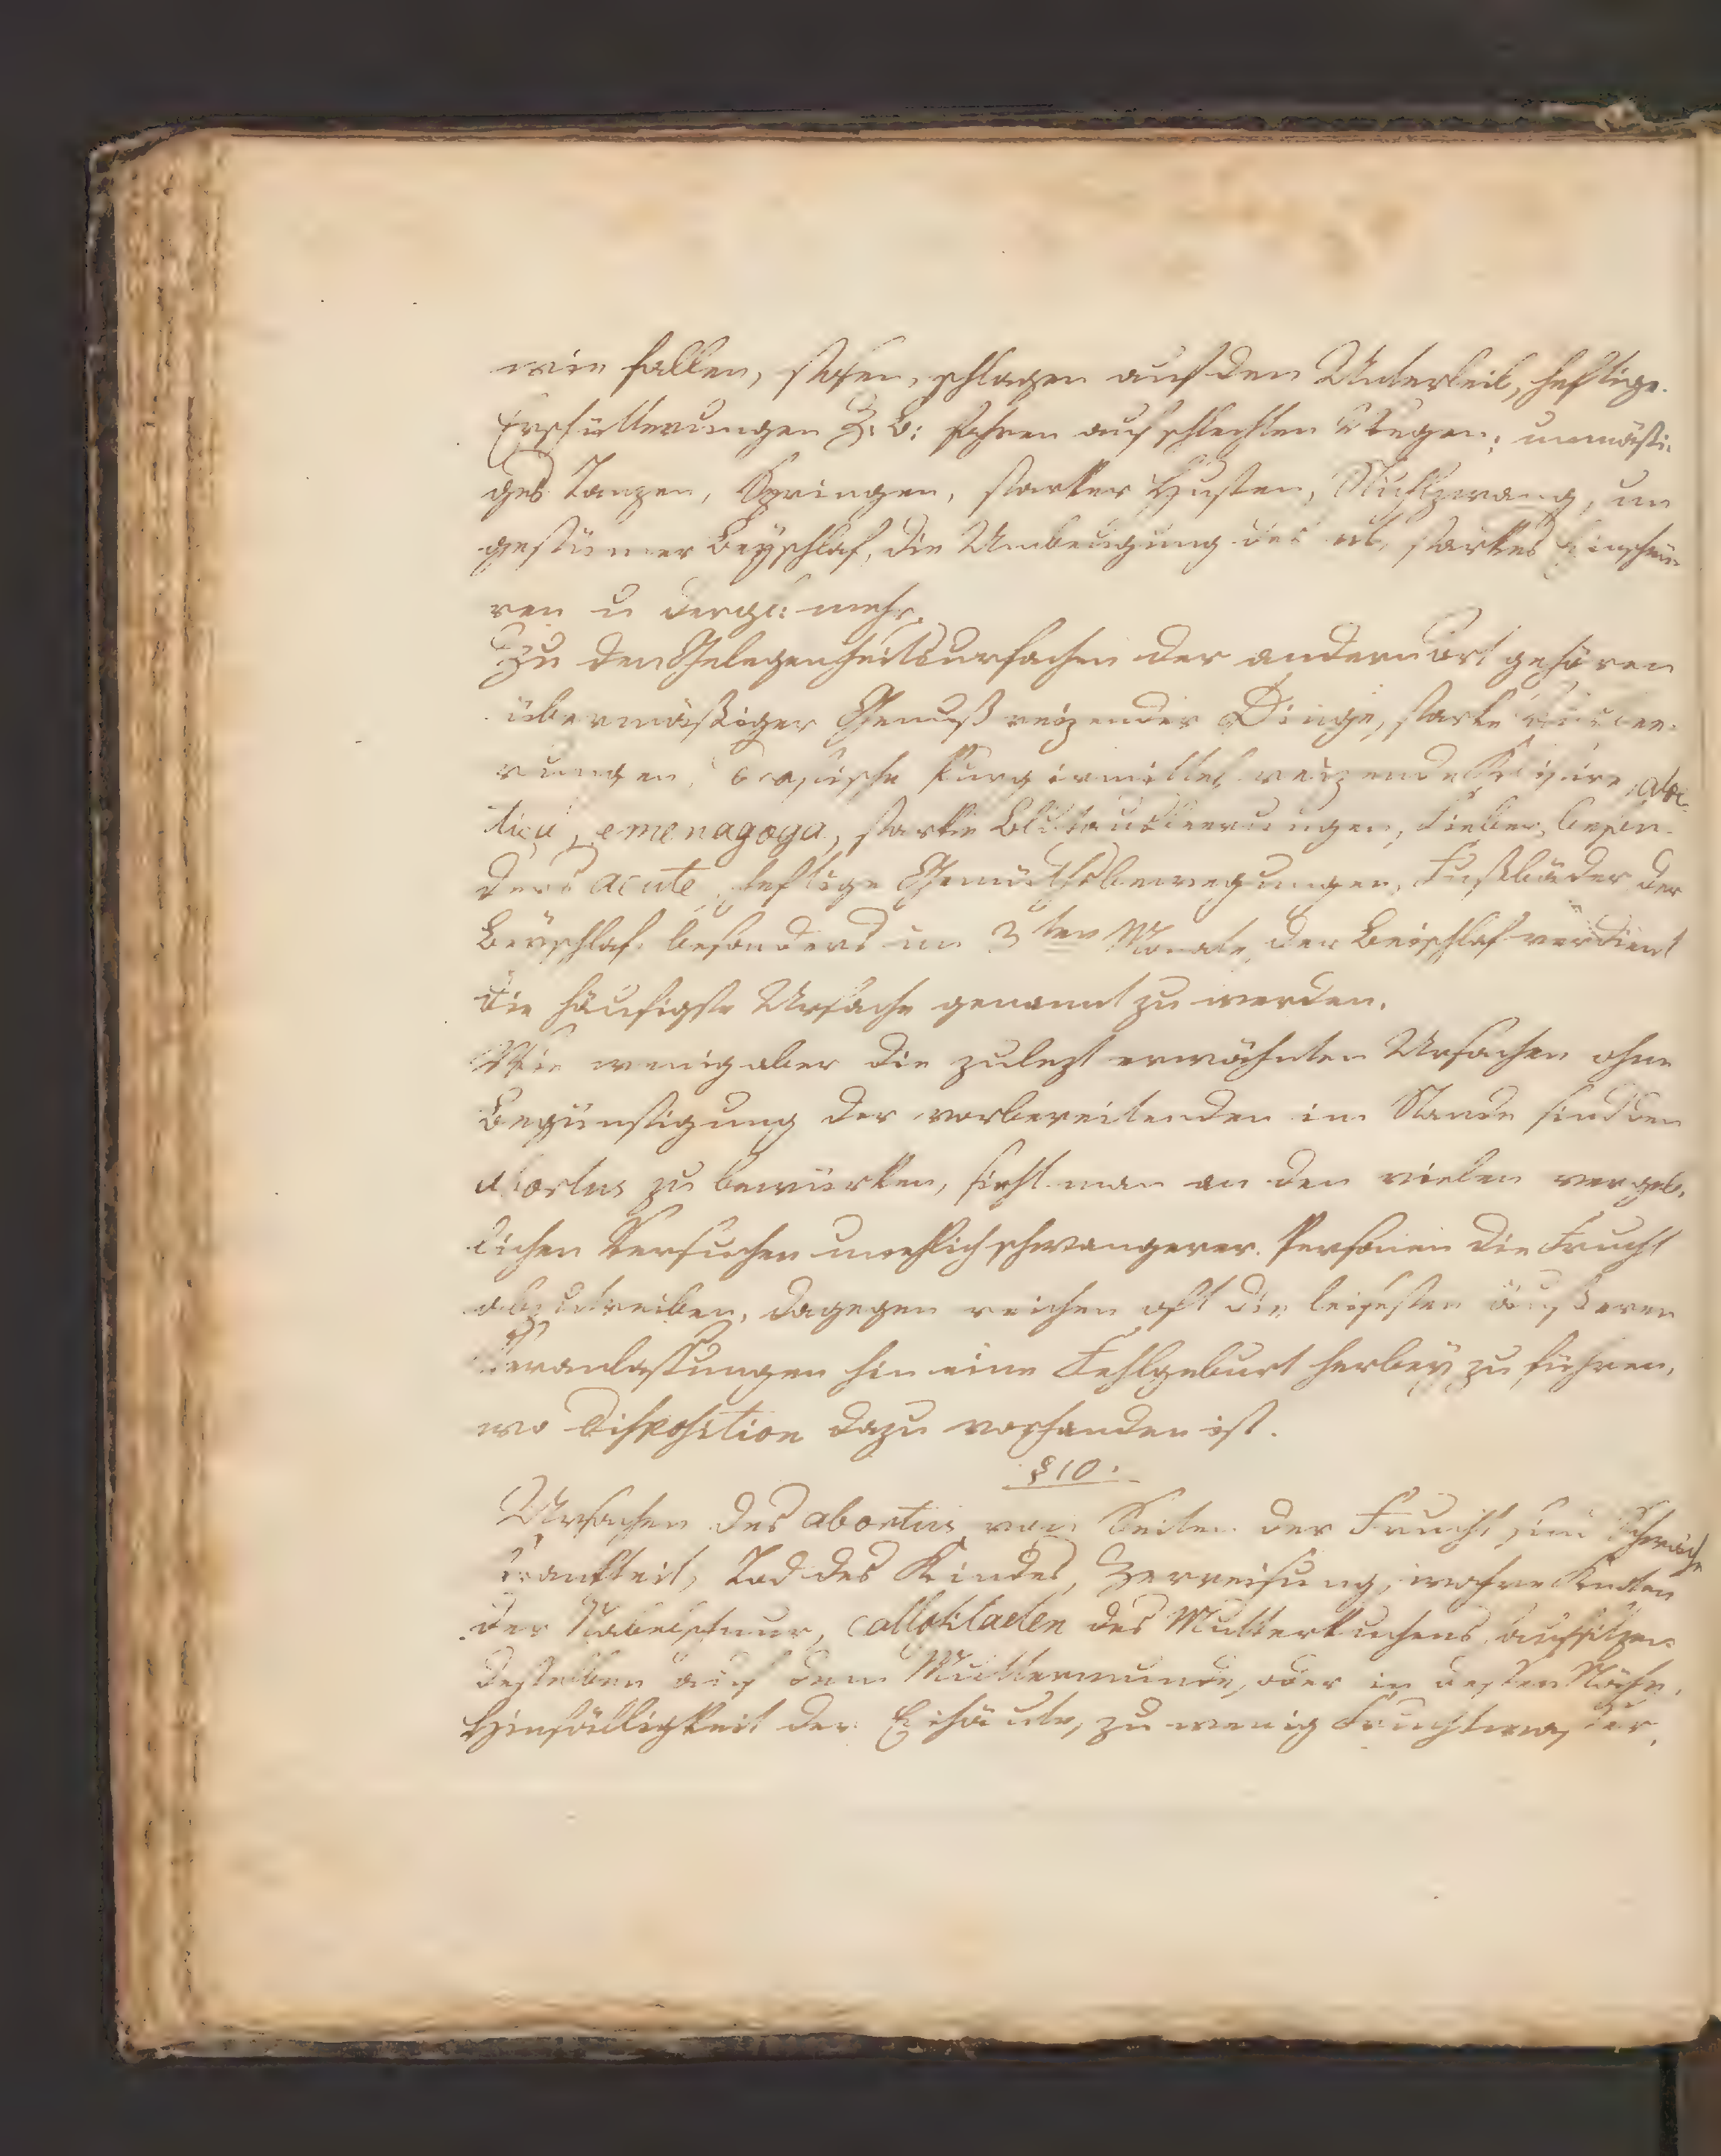 wie fallen, stoßen, schlagen auf den Unterleib, heftige
Erschütterungen Z: B: fahren auf schlechten Wegen; unmäßi-
ges Tanzen, Springen, starker Husten, Stuhlzwang, un
gestümer Beyschlaf, die Umbeugung des ut, starkes Einschnü
ren u dergl: mehr.
Zu den Gelegenheitsursachen der andern Art gehören
übermäßiger Genuß reizender Dinge, starke
rungen, drastische Purgirmittel reizende Klistire,
emenagoga, starke Blutausleerungen, Fieber, beson-
ders acute, heftige Gemüthsbewegungen, Fußbäder der
Beyschlaf besonders im 3ten Monate, der Beischlaf verdient
die häufigste Ursache genannt zu werden.
Wie wenig aber die zulezt erwähnten Ursachen ohne
Begünstigung der vorbereitenden im Stande sind den
abortus zu bewürken, sieht man an den vielen vergeb-
lichen Versuchen unehlich schwangerer Personen die Frucht
abzutreiben, dagegen reichen oft die leisesten äußeren
Veranlassungen hin eine Fehlgeburt herbey zu führen,
wo Disposition dazu vorhanden ist.
§ 10.
Ursachen des abortus von Seiten der Frucht sind Schwäche
Krankheit, Tod des Kindes, Zerreisung, wahre Knoten
der Nabelschnur, des Mutterkuchens, aufsitzen
desselben auf dem Muttermunde, oder in dessen Nähe,
Hinfälligkeit der Eihäute, zu wenig Fruchtwasser,